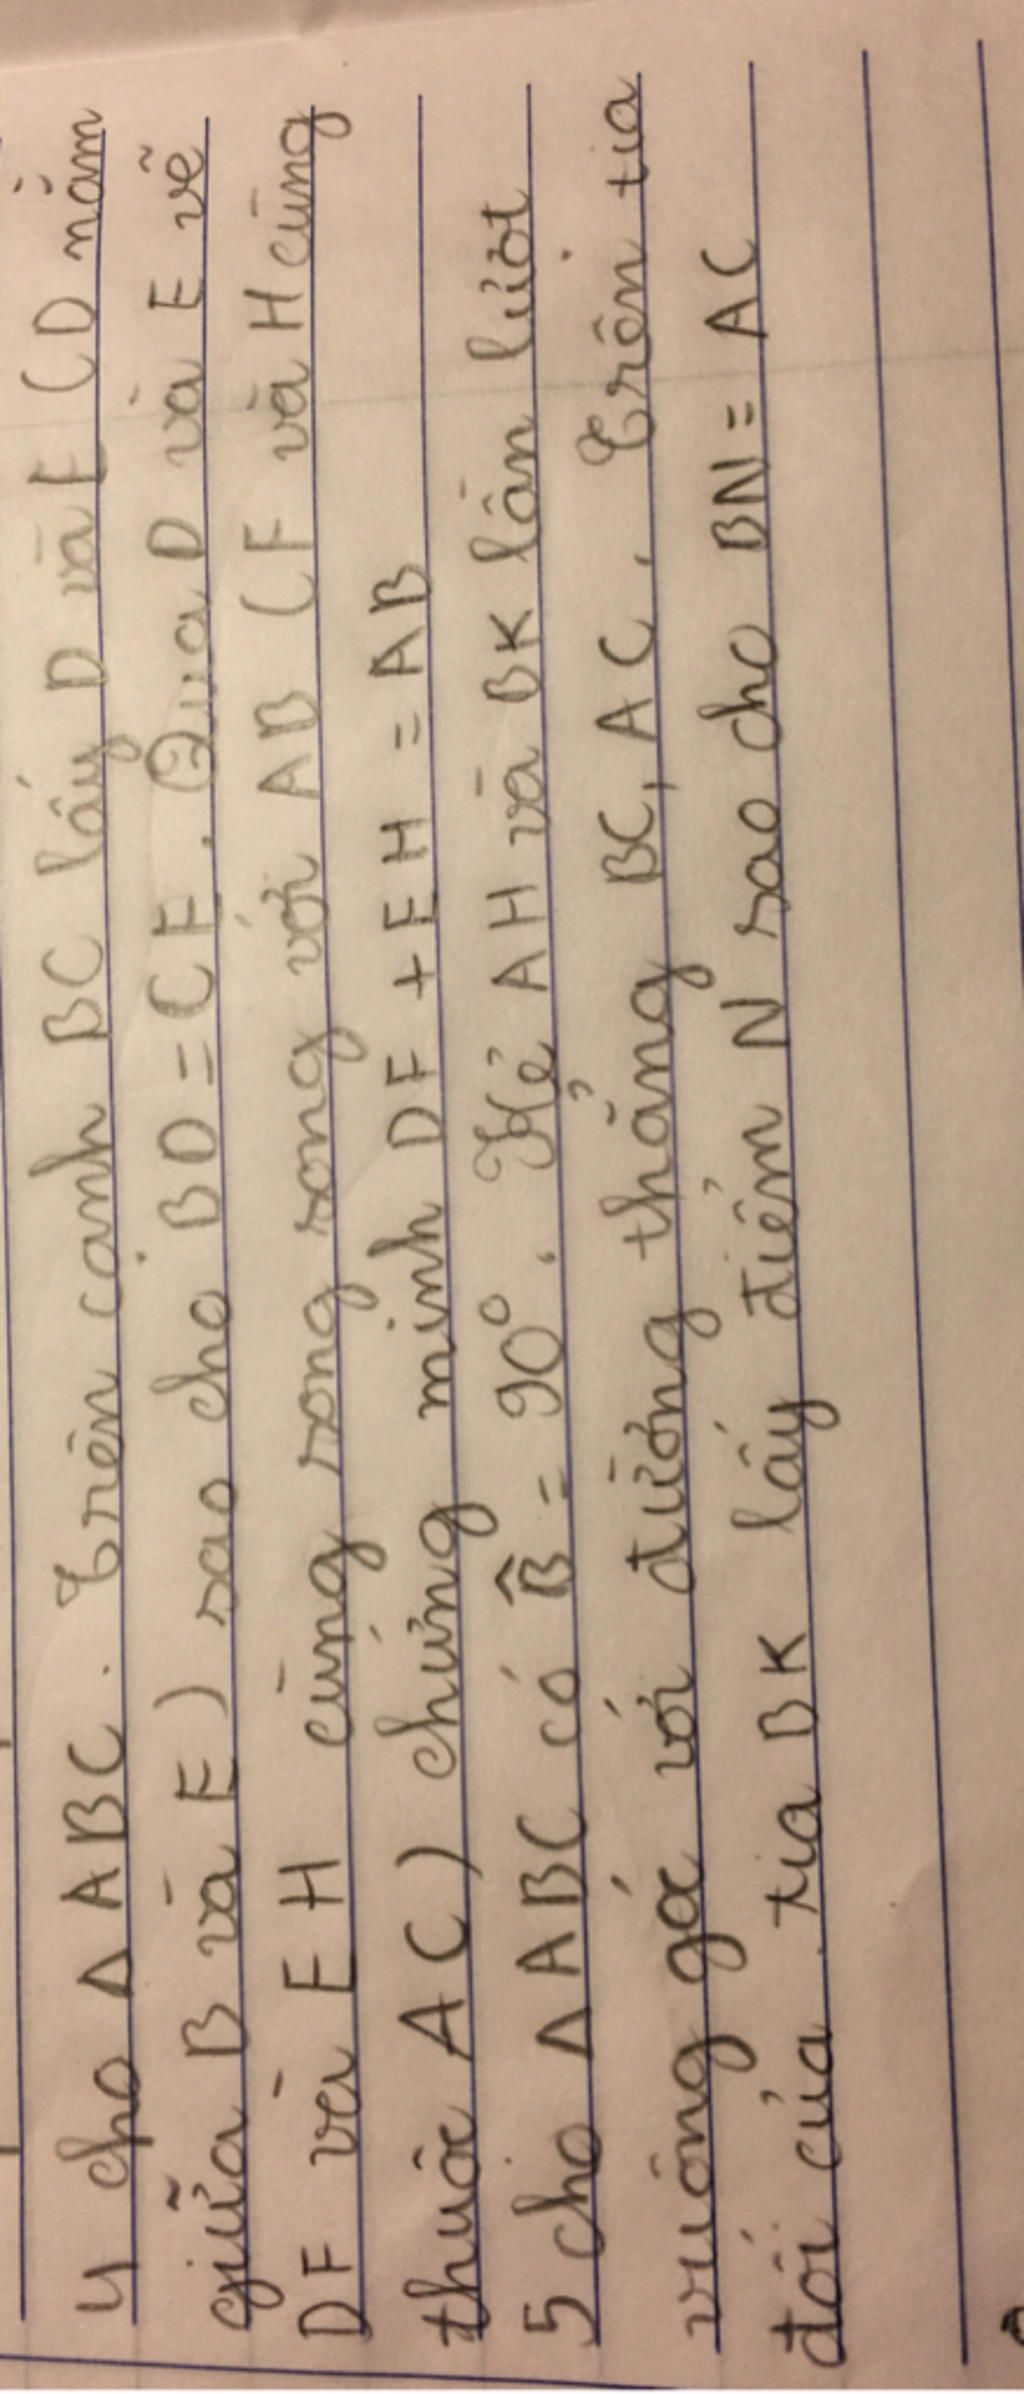 4 cho Δ ABC. Trên cạnh BC lấy D và E (D nằm
giữa B và E) sao cho BD = CE. Qua D và E vẽ
DF và EH cùng song song với AB (F và H cùng
thuộc AC) chứng minh DF + EH = AB
5 cho Δ ABC có B̂ = 90°. Kẻ AH và BK lần lượt
vuông góc với đường thẳng BC, AC. Trên tia
đối của tia BK lấy điểm N sao cho BN = AC